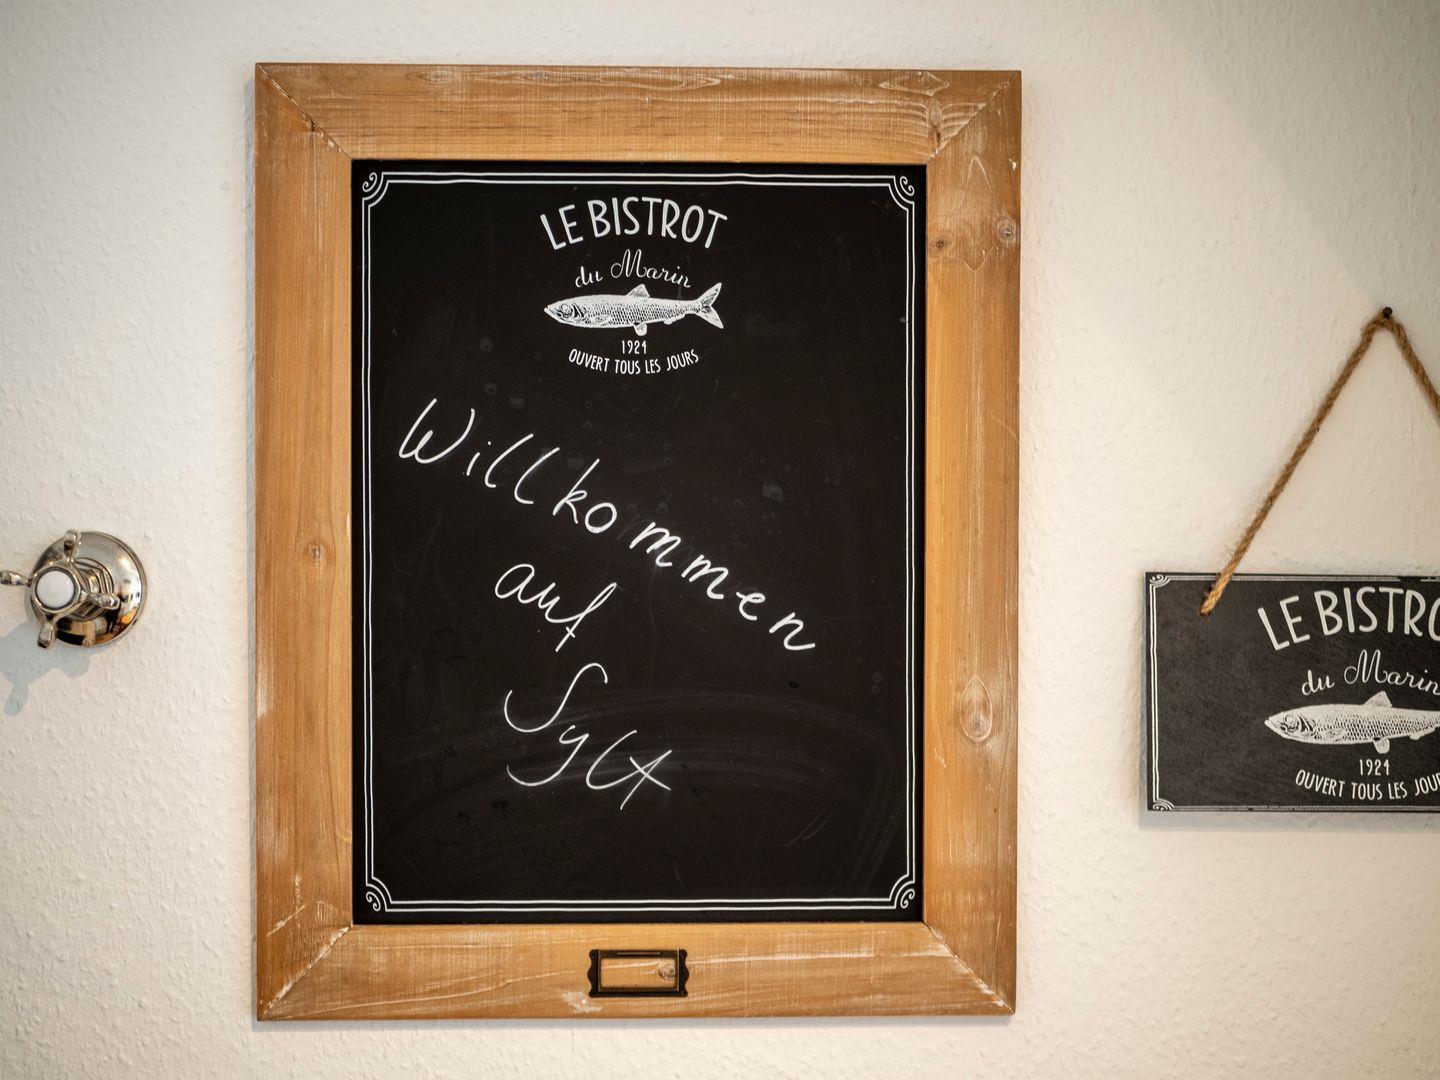 LE BISTROT
du Marin
1924
OUVERT TOUS LES JOURS
Willkommen
auf
Sylt
LE BISTRO
du Marin
1924
OUVERT TOUS LES JOUR